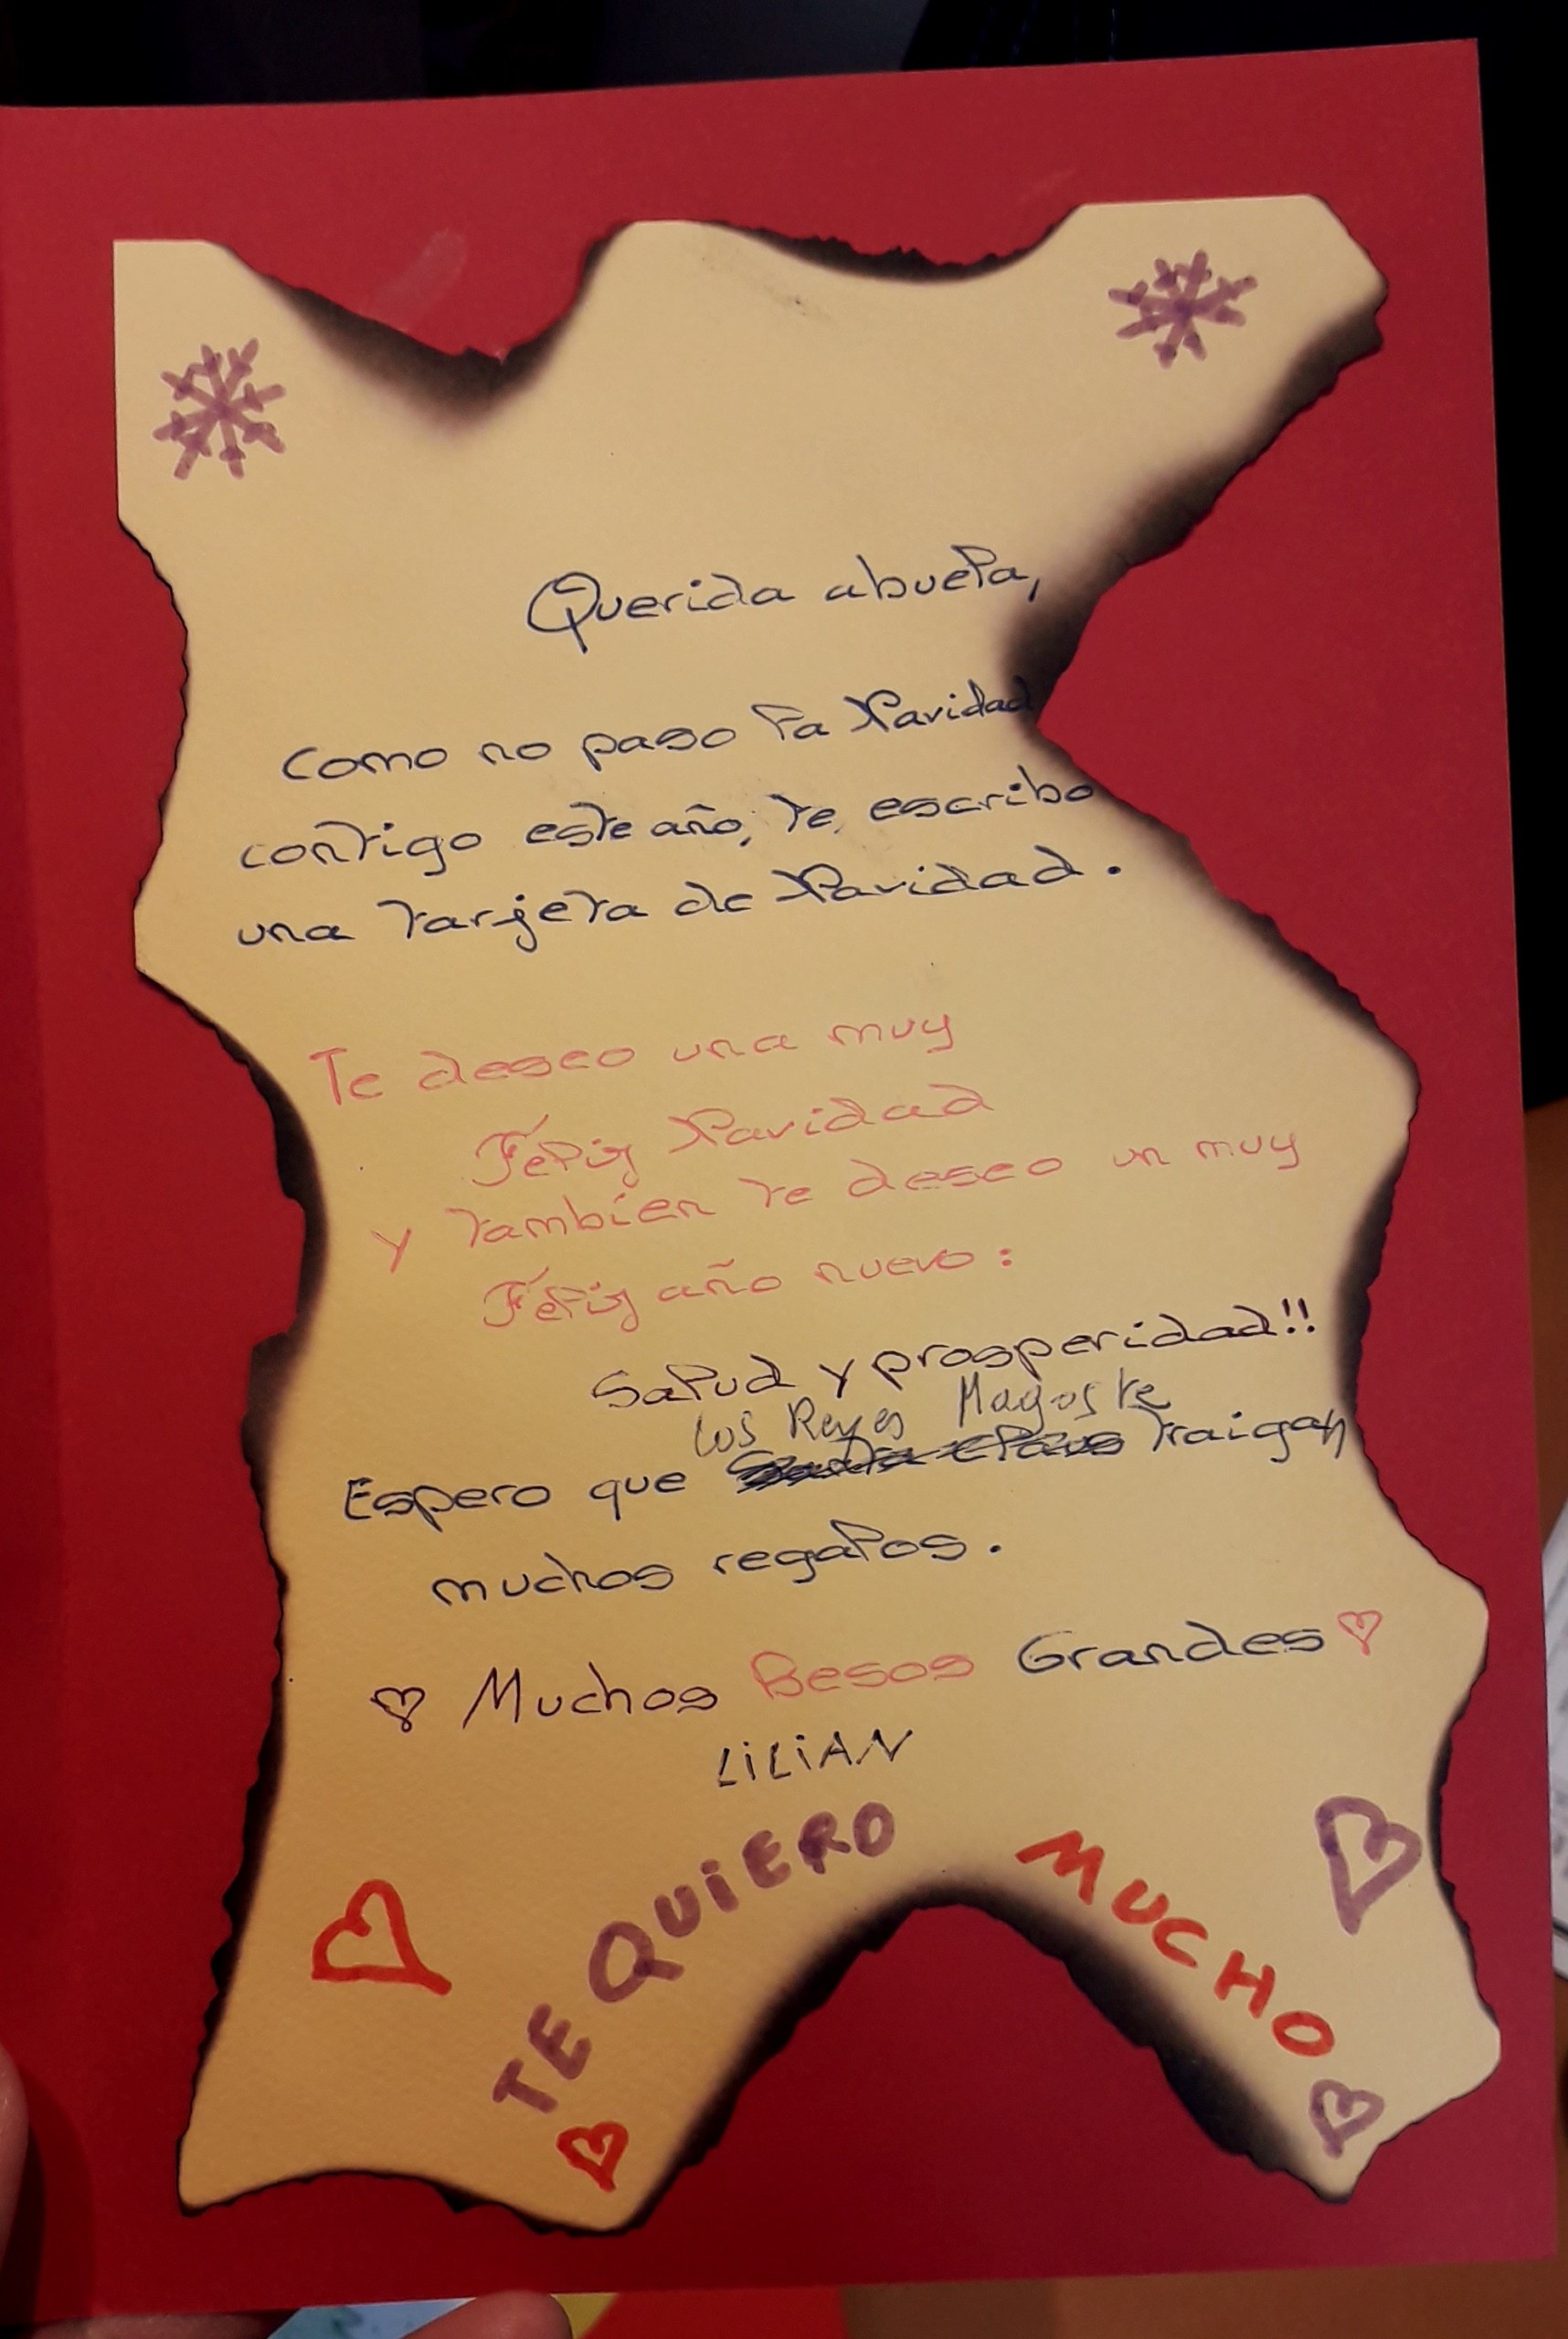 Querida abuela,
Como no paso la Navidad
contigo este año, te escribo
una tarjeta de Navidad.
Te deseo una muy
Feliz Navidad
y tambien te deseo un muy
Feliz año nuevo:
Salud y prosperidad!!
Los Reyes Magos te
Espero que Santa Claus traigan
muchos regalos.
♡ Muchos Besos Grandes ♡
LiLiAN
TE QUiERO MUCHO